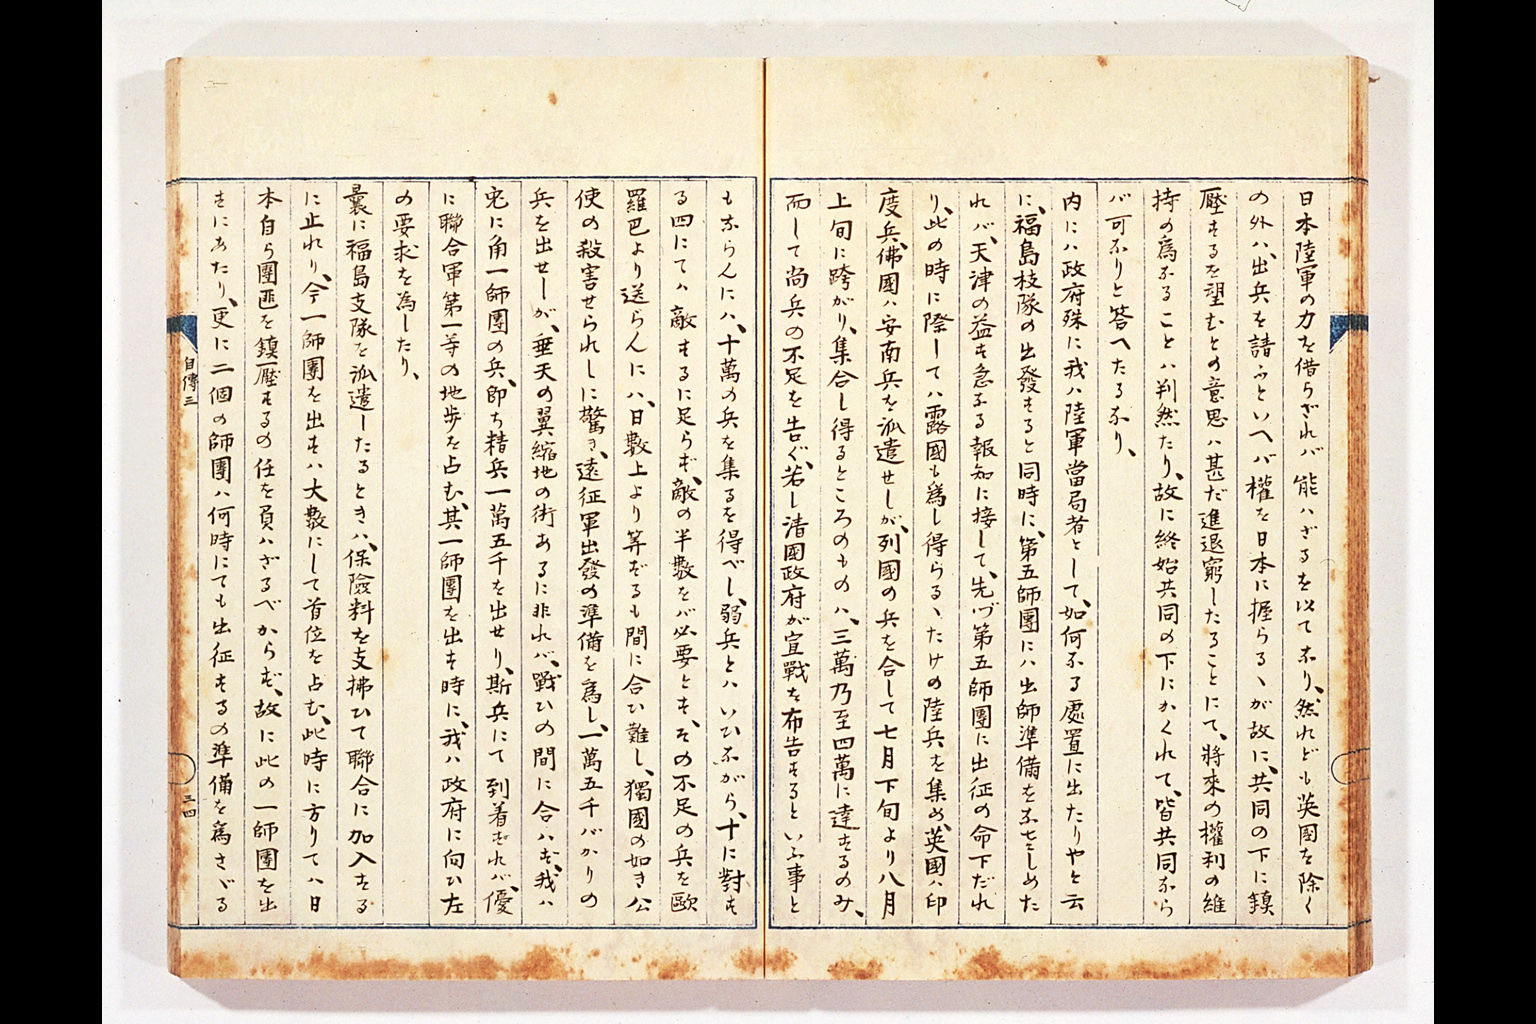 日本陸軍の力を借らざれバ能ハざるを以てなり、然れども英國を除く
の外ハ、出兵を請ふといへバ權を日本に握らるヽが故に、共同の下に鎮
壓するを望むとの意思ハ甚だ進退窮したることにて、將來の權利の維
持の爲なることハ判然たり、故に終始共同の下にかくれて、皆共同なら
バ可なりと答へたるなり、
内にハ政府殊に我ハ陸軍當局者として、如何なる處置に出たりやと云
に、福島枝隊の出發すると同時に、第五師團にハ出師準備をなさしめた
れバ、天津の益す急なる報知に接して、先づ第五師團に出征の命下だれ
り、此の時に際してハ露國も爲し得らるヽたけの陸兵を集め、英國ハ印
度兵、佛國ハ安南兵を派遣せしが、列國の兵を合して七月下旬より八月
上旬に跨がり、集合し得るところのものハ、三萬乃至四萬に達するのみ、
而して尚兵の不足を告ぐ、若し清國政府が宣戰を布告するといふ事と
もならんにハ、十萬の兵を集るを得べし、弱兵とハいひながら、十に對す
る四にてハ敵するに足らず、敵の半數をバ必要とす、その不足の兵を歐
羅巴より送らんにハ、日數上より算ずるも間に合ひ難し、獨國の如き公
使の殺害せられしに驚き、遠征軍出發の準備を爲し、一萬五千バかりの
兵を出せしが、垂天の翼縮地の術あるに非れバ、戰ひの間に合ハず、我ハ
兎に角一師團の兵、即ち精兵一萬五千を出せり、斯兵にて到着すれバ、優
に聯合軍第一等の地歩を占む、其一師團を出す時に、我ハ政府に向ひ左
の要求を為したり、
曩に福島支隊を派遣したるときハ、保險料を支拂ひて聯合に加入する
に止れり、今一師團を出すハ大數にして首位を占む、此時に方りてハ日
本自ら團匪を鎮壓するの任を負ハざるべからず、故に此の一師團を出
すにあたり、更に二個の師團ハ何時にても出征するの準備を爲さゞる
自傳三
三四